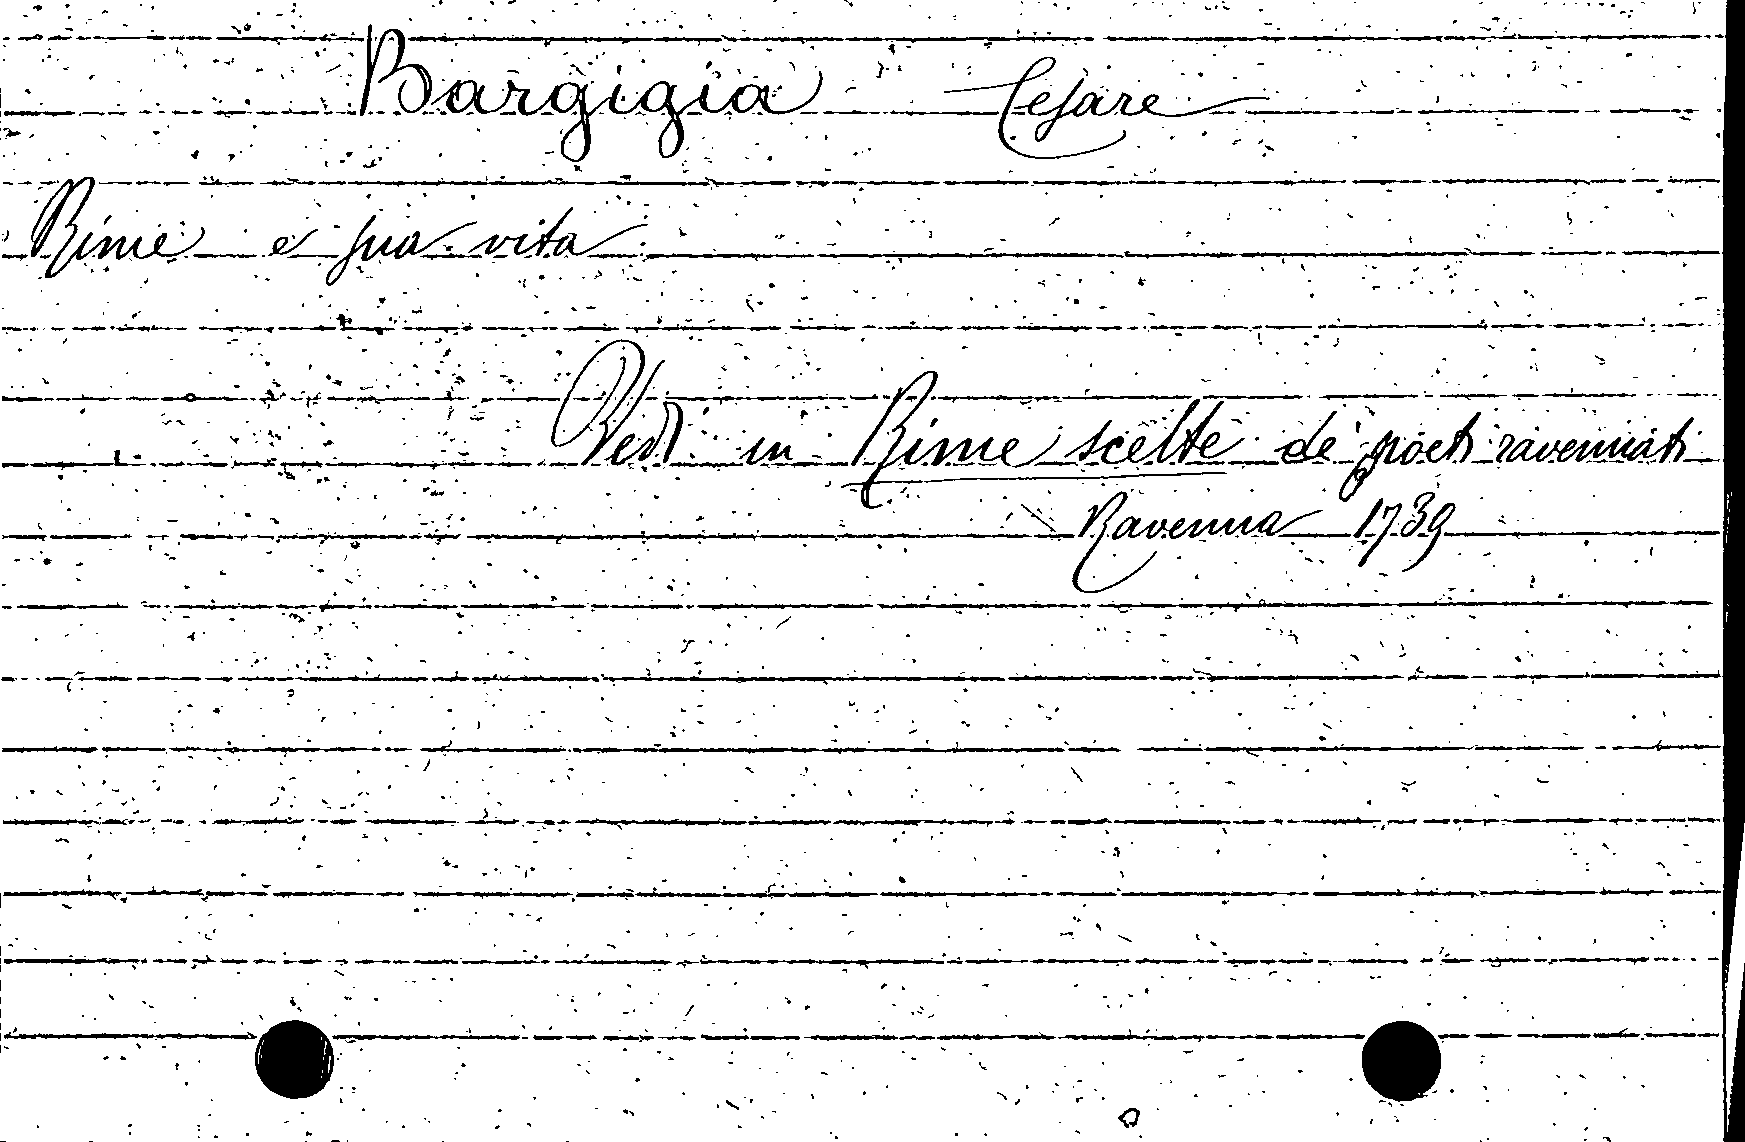 Bargigia Cesare
Rime e sua vita
Vedi in Rime scelte de' poeti ravennati
Ravenna 1739